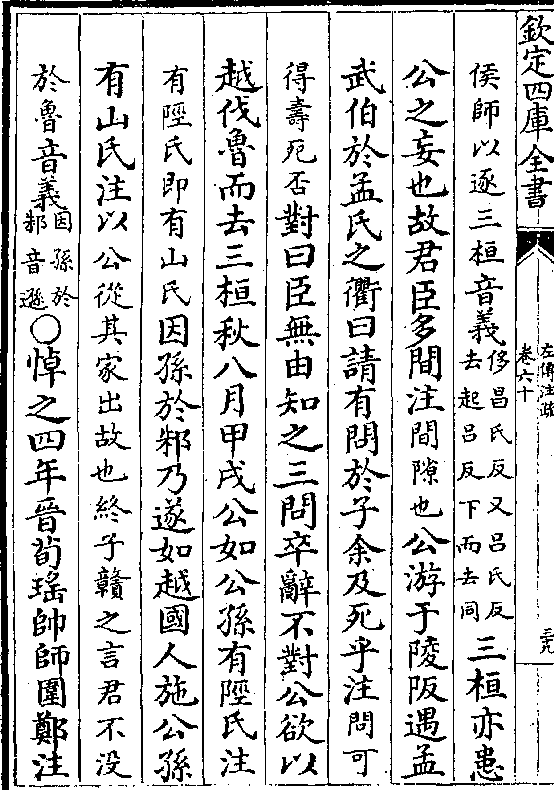 欽定四庫全書
左傳注疏
卷六十
侯師以逐三桓音義侈昌氏反又呂氏反
去起呂反下而去同三桓亦患
公之妄也故君臣多間注間隙也公游于陵阪遇孟
武伯於孟氏之衢曰請有問於子余及死乎注問可
得壽死否對曰臣無由知之三問卒辭不對公欲以
越伐魯而去三桓秋八月甲戌公如公孫有陘氏注
有陘氏即有山氏因孫於邾乃遂如越國人施公孫
有山氏注以公從其家出故也終子贛之言君不没
於魯音義因孫於
邾音遜○悼之四年晉荀瑤帥師圍鄭注